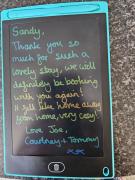 Sandy,
Thank you so
much for such a
lovely stay, we will
definitely be booking
with you again!
It felt like home away
from home, very cosy!
Love Joe,
Courtney + Tommy
xxx